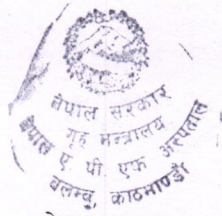 नेपाल सरकार
गृह मन्त्रालय
नेपाल ए पी एफ अस्पताल
बलम्बु, काठमाण्डौ